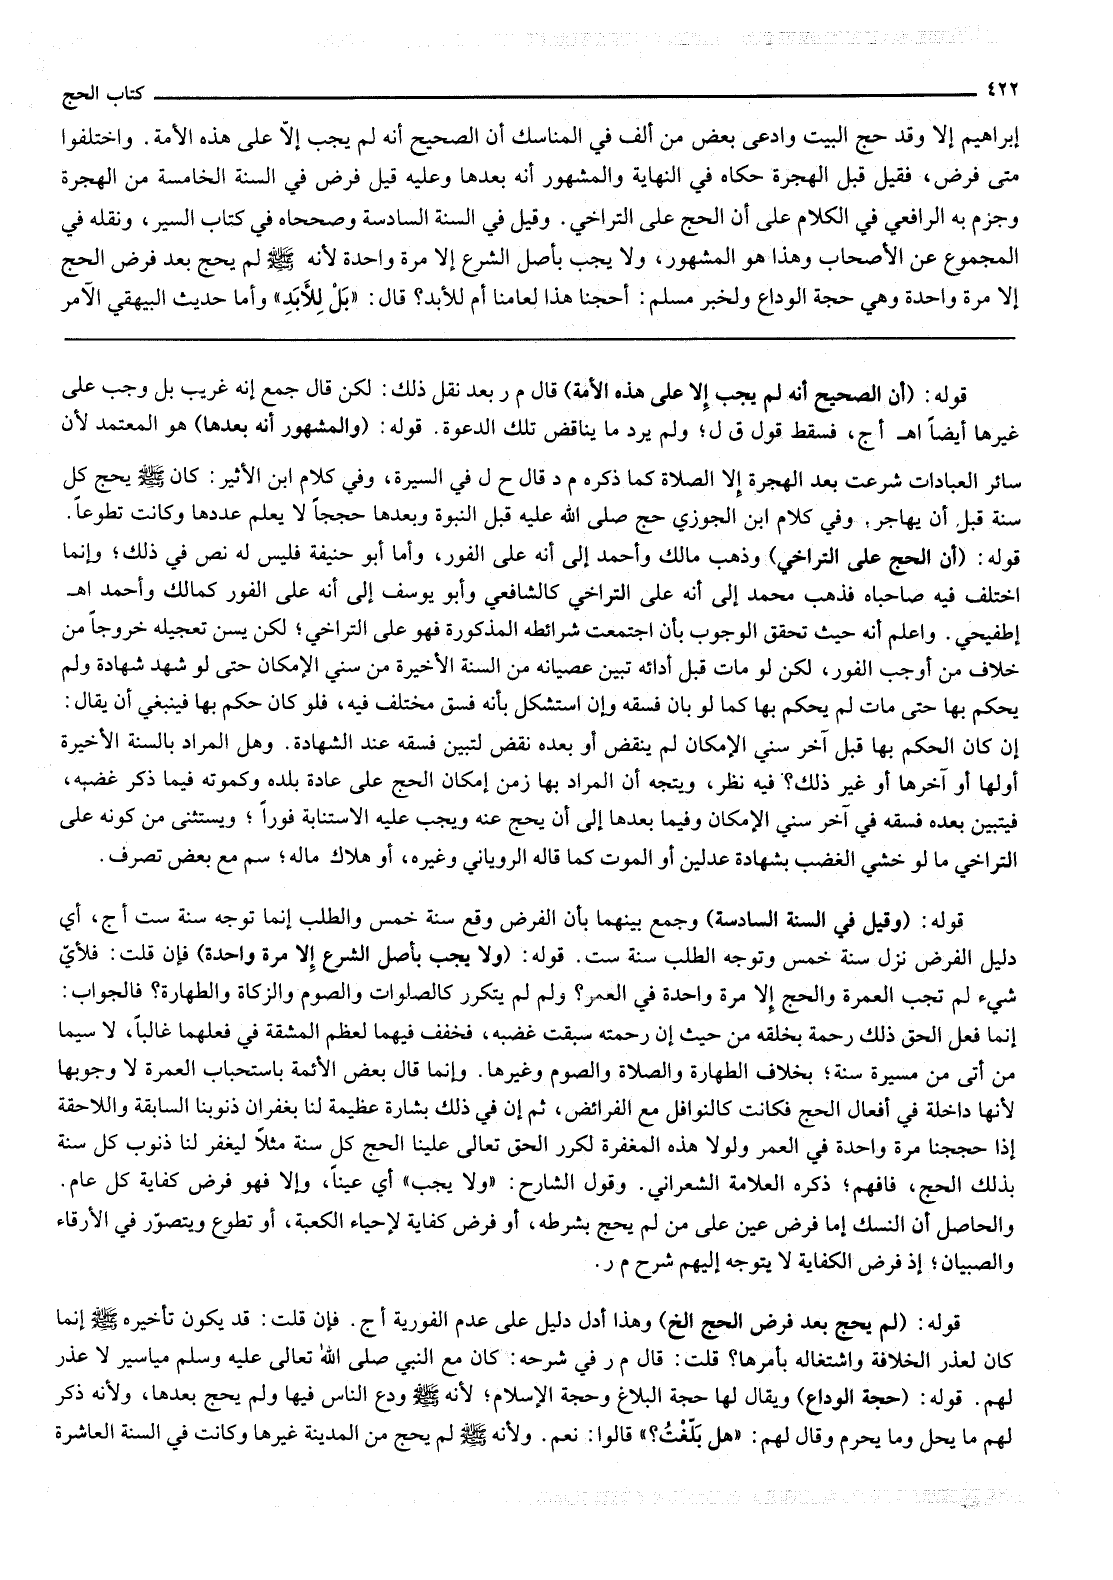 ٤٢٢ كتاب الحج
إبراهيم إلا وقد حج البيت وادعى بعض من ألف في المناسك أن الصحيح أنه لم يجب إلاّ على هذه الأمة. واختلفوا
متى فرض، فقيل قبل الهجرة حكاه في النهاية والمشهور أنه بعدها وعليه قيل فرض في السنة الخامسة من الهجرة
وجزم به الرافعي في الكلام على أن الحج على التراخي. وقيل في السنة السادسة وصححاه في كتاب السير، ونقله في
المجموع عن الأصحاب وهذا هو المشهور، ولا يجب بأصل الشرع إلا مرة واحدة لأنه ﷺ لم يحج بعد فرض الحج
إلا مرة واحدة وهي حجة الوداع ولخبر مسلم: أحجنا هذا لعامنا أم للأبد؟ قال: «بَلْ لِلأَبَدِ» وأما حديث البيهقي الآمر
قوله: (أن الصحيح أنه لم يجب إلا على هذه الأمة) قال م ر بعد نقل ذلك: لكن قال جمع إنه غريب بل وجب على
غيرها أيضاً اهـ أ ج، فسقط قول ق ل؛ ولم يرد ما يناقض تلك الدعوة. قوله: (والمشهور أنه بعدها) هو المعتمد لأن
سائر العبادات شرعت بعد الهجرة إلا الصلاة كما ذكره م د قال ح ل في السيرة، وفي كلام ابن الأثير: كان ﷺ يحج كل
سنة قبل أن يهاجر. وفي كلام ابن الجوزي حج صلى الله عليه قبل النبوة وبعدها حججاً لا يعلم عددها وكانت تطوعاً.
قوله: (أن الحج على التراخي) وذهب مالك وأحمد إلى أنه على الفور، وأما أبو حنيفة فليس له نص في ذلك؛ وإنما
اختلف فيه صاحباه فذهب محمد إلى أنه على التراخي كالشافعي وأبو يوسف إلى أنه على الفور كمالك وأحمد اهـ
إطفيحي. واعلم أنه حيث تحقق الوجوب بأن اجتمعت شرائطه المذكورة فهو على التراخي؛ لكن يسن تعجيله خروجاً من
خلاف من أوجب الفور، لكن لو مات قبل أدائه تبين عصيانه من السنة الأخيرة من سني الإمكان حتى لو شهد شهادة ولم
يحكم بها حتى مات لم يحكم بها كما لو بان فسقه وإن استشكل بأنه فسق مختلف فيه، فلو كان حكم بها فينبغي أن يقال:
إن كان الحكم بها قبل آخر سني الإمكان لم ينقض أو بعده نقض لتبين فسقه عند الشهادة. وهل المراد بالسنة الأخيرة
أولها أو آخرها أو غير ذلك؟ فيه نظر، ويتجه أن المراد بها زمن إمكان الحج على عادة بلده وكموته فيما ذكر غضبه،
فيتبين بعده فسقه في آخر سني الإمكان وفيما بعدها إلى أن يحج عنه ويجب عليه الاستنابة فوراً ؛ ويستثنى من كونه على
التراخي ما لو خشي الغضب بشهادة عدلين أو الموت كما قاله الروياني وغيره، أو هلاك ماله؛ سم مع بعض تصرف.
قوله: (وقيل في السنة السادسة) وجمع بينهما بأن الفرض وقع سنة خمس والطلب إنما توجه سنة ست أ ج، أي
دليل الفرض نزل سنة خمس وتوجه الطلب سنة ست. قوله: (ولا يجب بأصل الشرع إلا مرة واحدة) فإن قلت: فلأيّ
شيء لم تجب العمرة والحج إلا مرة واحدة في العمر؟ ولم لم يتكرر كالصلوات والصوم والزكاة والطهارة؟ فالجواب:
إنما فعل الحق ذلك رحمة بخلقه من حيث إن رحمته سبقت غضبه، فخفف فيهما لعظم المشقة في فعلهما غالباً، لا سيما
من أتى من مسيرة سنة؛ بخلاف الطهارة والصلاة والصوم وغيرها. وإنما قال بعض الأئمة باستحباب العمرة لا وجوبها
لأنها داخلة في أفعال الحج فكانت كالنوافل مع الفرائض، ثم إن في ذلك بشارة عظيمة لنا بغفران ذنوبنا السابقة واللاحقة
إذا حججنا مرة واحدة في العمر ولولا هذه المغفرة لكرر الحق تعالى علينا الحج كل سنة مثلاً ليغفر لنا ذنوب كل سنة
بذلك الحج، فافهم؛ ذكره العلامة الشعراني. وقول الشارح: «ولا يجب» أي عيناً، وإلا فهو فرض كفاية كل عام.
والحاصل أن النسك إما فرض عين على من لم يحج بشرطه، أو فرض كفاية لإحياء الكعبة، أو تطوع ويتصوّر في الأرقاء
والصبيان؛ إذ فرض الكفاية لا يتوجه إليهم شرح م ر.
قوله: (لم يحج بعد فرض الحج الخ) وهذا أدل دليل على عدم الفورية أ ج. فإن قلت: قد يكون تأخيره ﷺ إنما
كان لعذر الخلافة واشتغاله بأمرها؟ قلت: قال م ر في شرحه: كان مع النبي صلى اللهُ تعالى عليه وسلم مياسير لا عذر
لهم. قوله: (حجة الوداع) ويقال لها حجة البلاغ وحجة الإسلام؛ لأنه ﷺ ودع الناس فيها ولم يحج بعدها، ولأنه ذكر
لهم ما يحل وما يحرم وقال لهم: «هل بَلَّغْتُ؟» قالوا: نعم. ولأنه ﷺ لم يحج من المدينة غيرها وكانت في السنة العاشرة